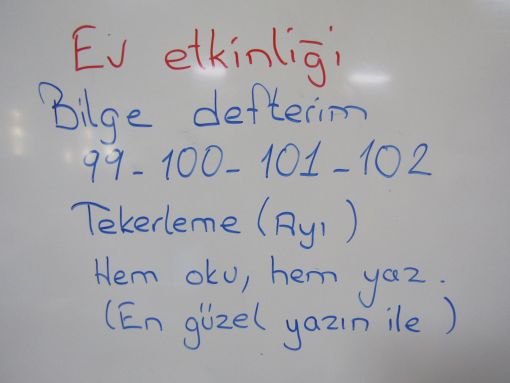 Ev etkinliği
Bilge defterim
99-100-101-102
Tekerleme (Ayı)
Hem oku, hem yaz.
(En güzel yazın ile)